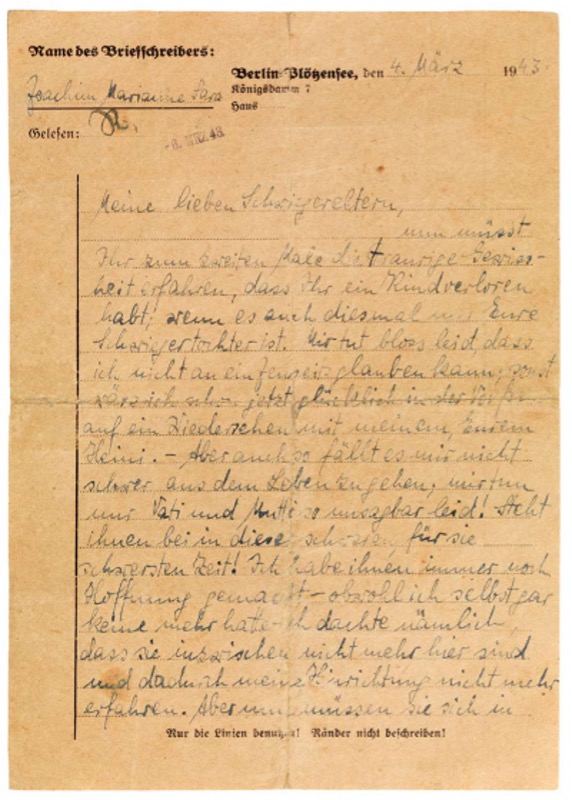 Name des Briefschreibers:
Berlin-Plötzensee, den 4. März 1943.
Königsdamm 7
Haus
Joachim Marianne Sara
Gelesen: R.
-8. MRZ. 43
Meine lieben Schwiegereltern,
nun müsst
Ihr zum zweiten Male die traurige Gewiss-
heit erfahren, dass Ihr ein Kind verloren
habt; wenn es auch diesmal nur Eure
Schwiegertochter ist. Mir tut bloss leid, dass
ich nicht an ein Jenseits glauben kann; sonst
wäre ich schon jetzt glücklich in der
auf ein Wiedersehen mit meinem, Eurem
Heini. – Aber auch so fällt es mir nicht
schwer aus dem Leben zu gehen; mir tun
nur Vati und Mutti so unsagbar leid! Steht
ihnen bei in dieser schweren, für sie
schwersten Zeit! Ich habe ihnen immer noch
Hoffnung gemacht – obwohl ich selbst gar
keine mehr hatte – ich dachte nämlich,
dass sie inzwischen nicht mehr hier sind
und dadurch meine Hinrichtung nicht mehr
erfahren. Aber nun müssen sie sich in
Nur die Linien benutzen! Ränder nicht beschreiben!